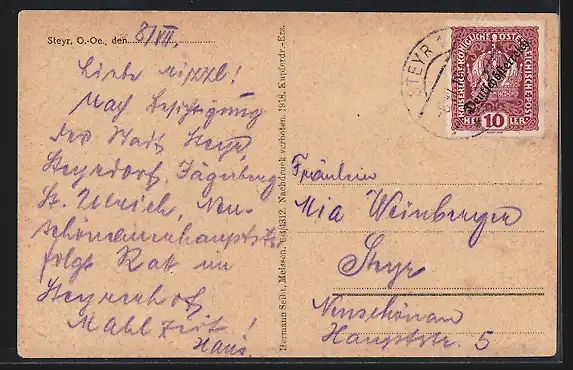 Steyr, O.-Oe., den 8/VII.
Liebe Mizzl!
Nach Besichtigung
der Stadt Steyr,
Steyrdorf, Jägerberg
St. Ulrich, Neu-
schönauerhauptstr.
folgt Rast im
Steyrerhof,
Mahlzeit!
Hans.
Hermann Seibt, Meissen, 644312. Nachdruck verboten. 1918. Kupferdr.-Ers.
STEYR 1
KAISERLICHE KÖNIGLICHE ÖSTERREICHISCHE POST
Deutschösterreich
10
HELLER
Fräulein
Mia Weinberger
Steyr
Neuschönau
Hauptstr. 5